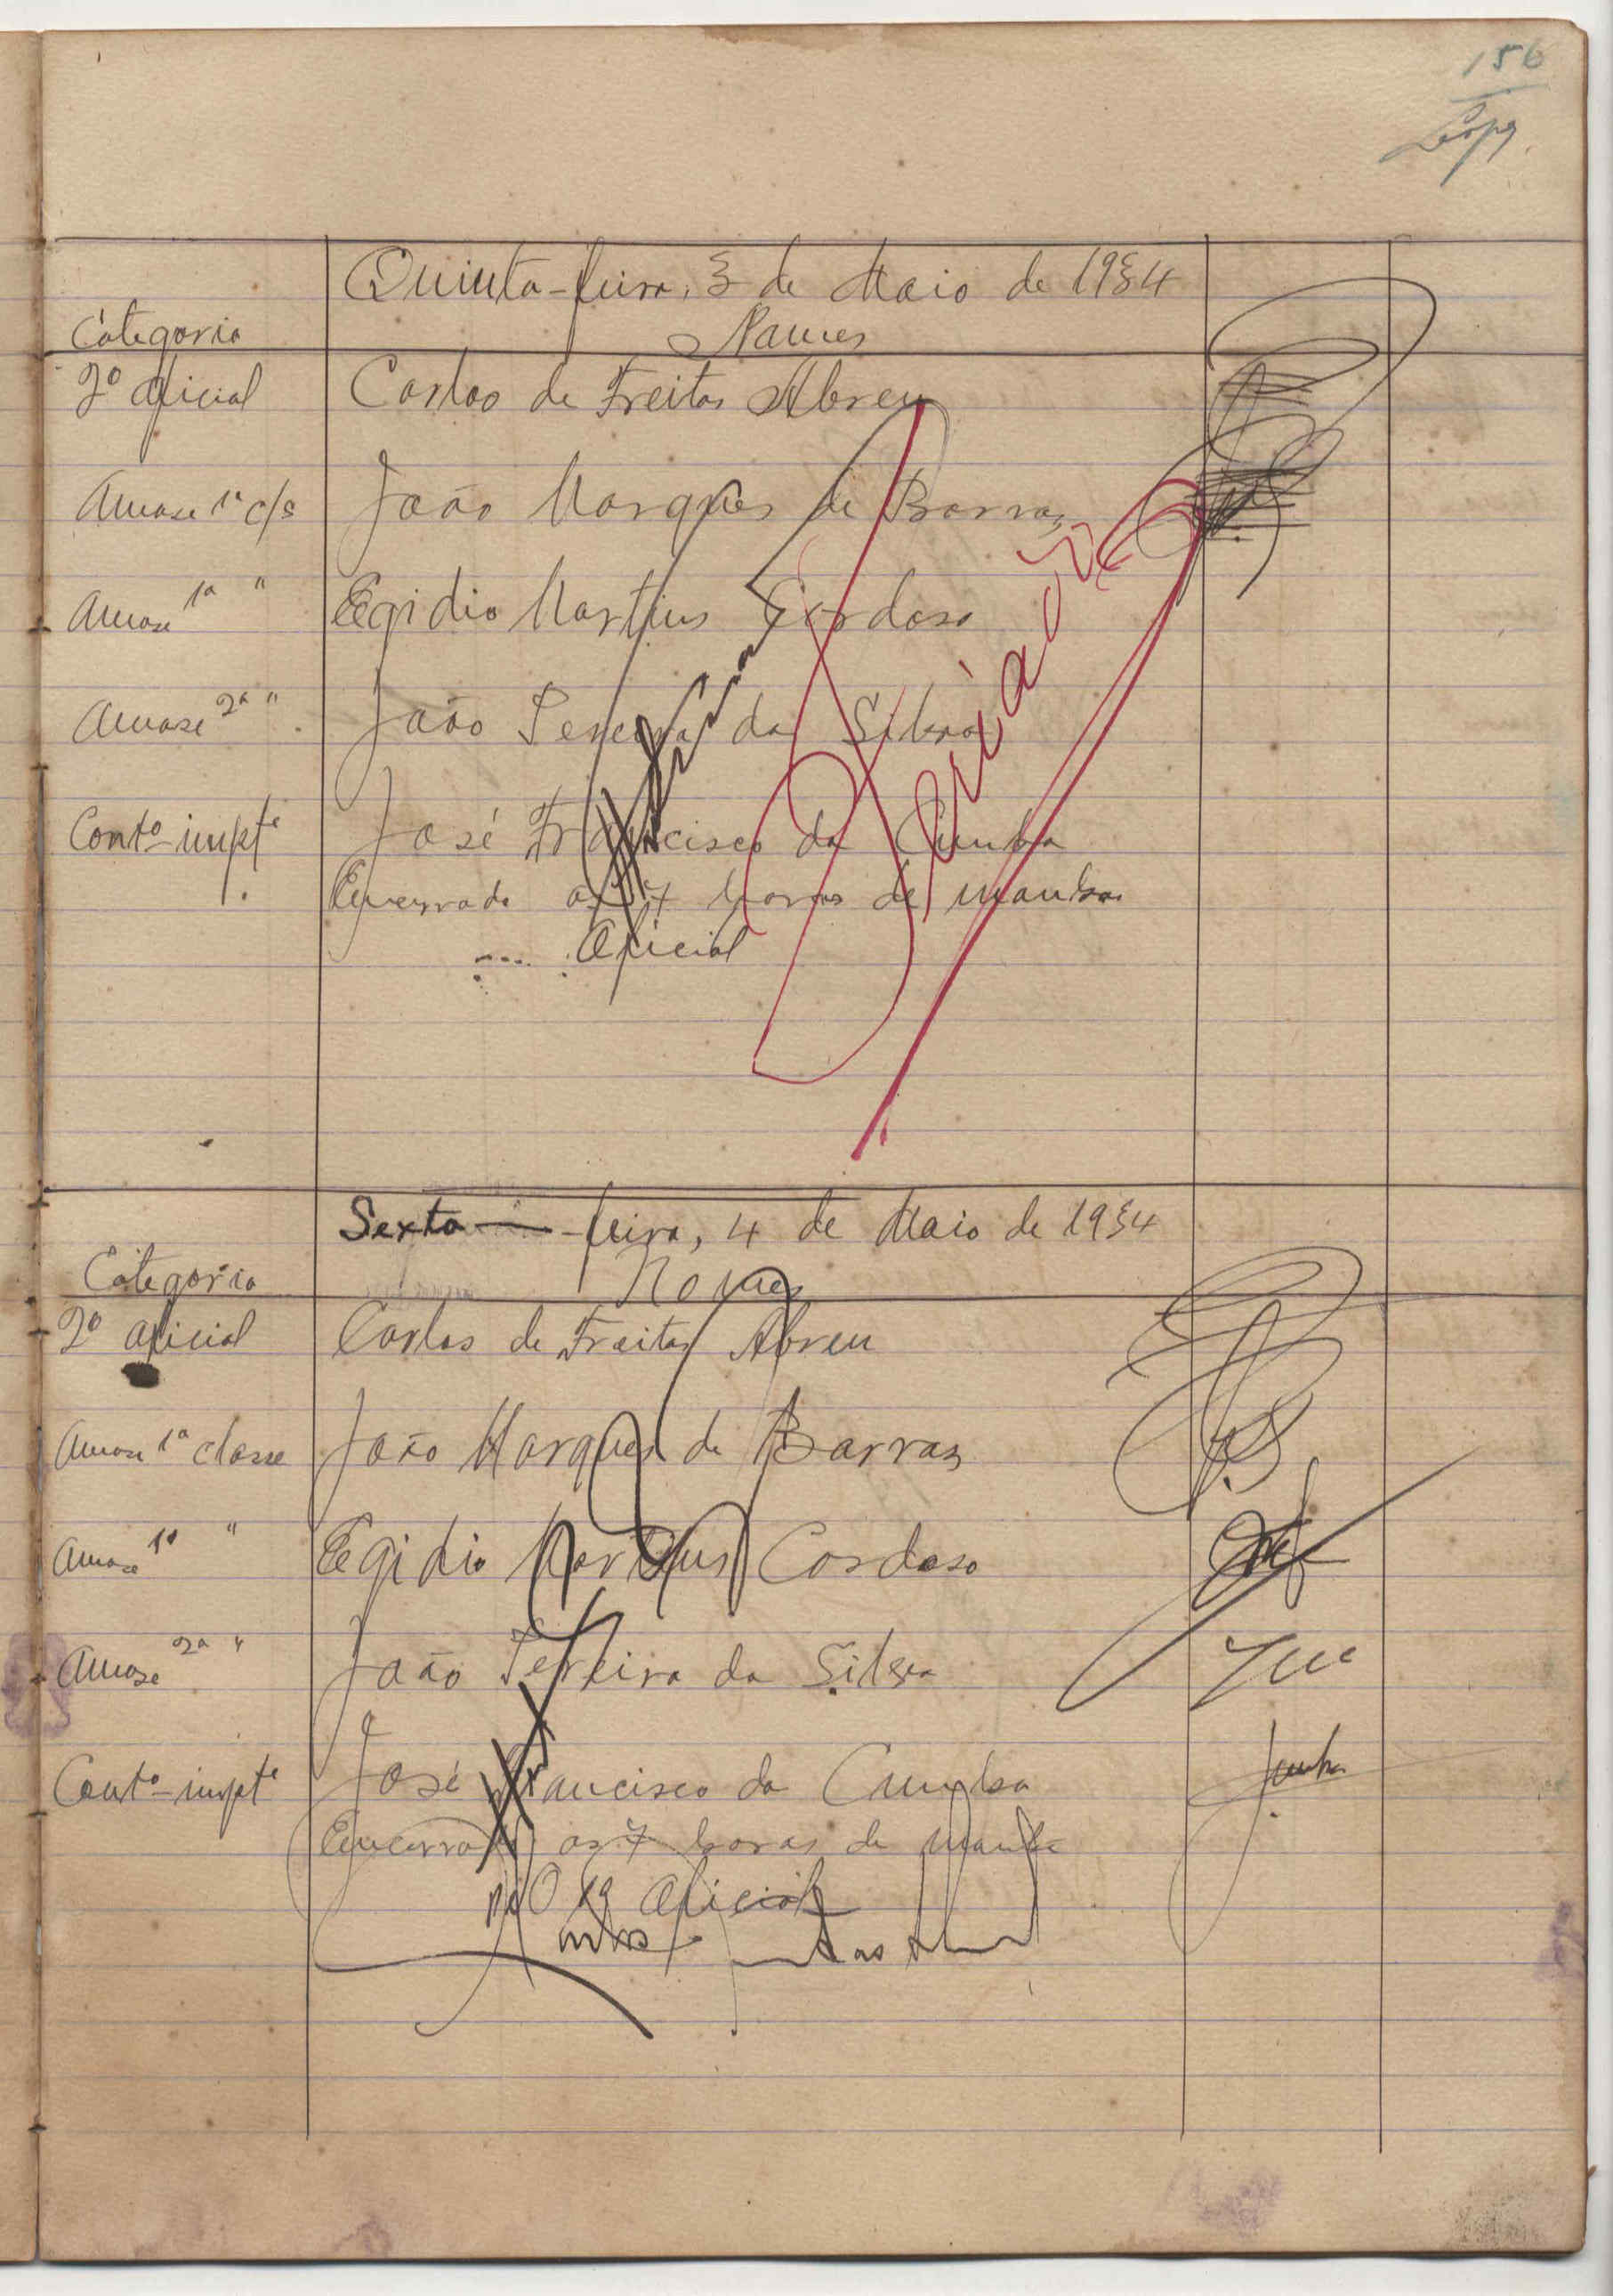 156
Quinta-feira, 3 de Maio de 1934
Categoria Nomes
2º Oficial Carlos de Freitas Abreu
Amase 1ª c/s João Marques de Barros
Amase 1ª " Egidio Martins Cardoso
Amase 2ª " João Pereira da Silva
Contº-impte José Francisco da Cunha
Encerrado as 7 horas de manha
Oficial
Feriado
Sexta-feira, 4 de Maio de 1934
Categoria Nomes
2º Oficial Carlos de Freitas Abreu
Amase 1ª classe João Marques de Barros
Amase 1ª " Egidio Martins Cardoso
Amase 2ª " João Pereira da Silva
Contº-impte José Francisco da Cunha Cunha
Encerrado as 7 horas de manha
O Oficial